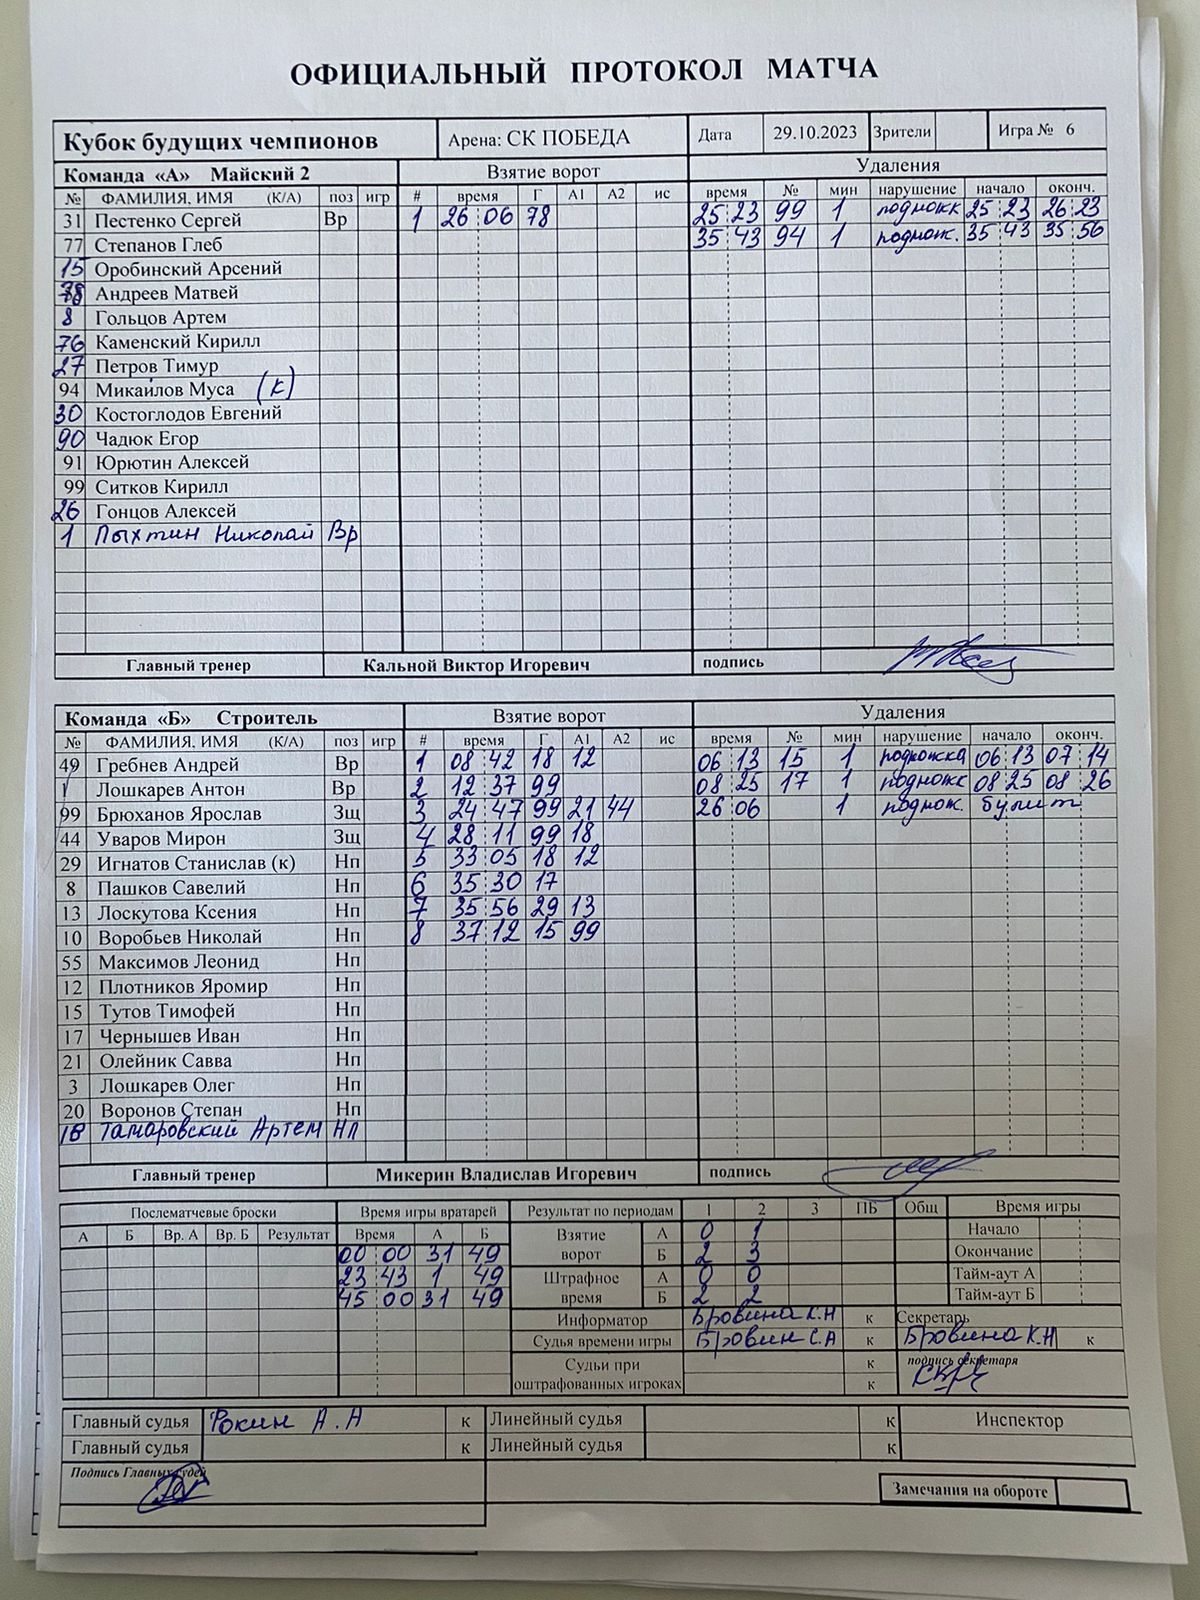 ОФИЦИАЛЬНЫЙ ПРОТОКОЛ МАТЧА
Кубок будущих чемпионов Арена: СК ПОБЕДА Дата 29.10.2023 Зрители Игра № 6
Команда «А» Майский 2 Взятие ворот Удаления
№ ФАМИЛИЯ, ИМЯ (К/А) поз игр # время Г А1 А2 ис время № мин нарушение начало оконч.
31 Пестенко Сергей Вр 1 26 06 78 25 23 99 1 подножк 25 23 26 23
77 Степанов Глеб 35 43 94 1 поднож. 35 43 35 56
15 Оробинский Арсений
78 Андреев Матвей
8 Гольцов Артем
76 Каменский Кирилл
27 Петров Тимур
94 Микаилов Муса (К)
30 Костоглодов Евгений
90 Чадюк Егор
91 Юрютин Алексей
99 Ситков Кирилл
26 Гонцов Алексей
1 Пыхтин Николай Вр
Главный тренер Кальной Виктор Игоревич подпись
Команда «Б» Строитель Взятие ворот Удаления
№ ФАМИЛИЯ, ИМЯ (К/А) поз игр # время Г А1 А2 ис время № мин нарушение начало оконч.
49 Гребнев Андрей Вр 1 08 42 18 12 06 13 15 1 подножка 06 13 07 14
1 Лошкарев Антон Вр 2 12 37 99 08 25 17 1 подножк 08 25 08 26
99 Брюханов Ярослав Зщ 3 24 47 99 21 44 26 06 1 поднож. булит
44 Уваров Мирон Зщ 4 28 11 99 18
29 Игнатов Станислав (к) Нп 5 33 05 18 12
8 Пашков Савелий Нп 6 35 30 17
13 Лоскутова Ксения Нп 7 35 56 29 13
10 Воробьев Николай Нп 8 37 12 15 99
55 Максимов Леонид Нп
12 Плотников Яромир Нп
15 Тутов Тимофей Нп
17 Чернышев Иван Нп
21 Олейник Савва Нп
3 Лошкарев Олег Нп
20 Воронов Степан Нп
18 Тамаровский Артем Нп
Главный тренер Микерин Владислав Игоревич подпись
Послематчевые броски Время игры вратарей Результат по периодам 1 2 3 ПБ Общ Время игры
А Б Вр. А Вр. Б Результат Время А Б Взятие ворот А 0 1 Начало
00 00 31 49 Б 2 3 Окончание
23 43 1 49 Штрафное время А 0 0 Тайм-аут А
45 00 31 49 Б 2 2 Тайм-аут Б
Информатор Бровина К.Н к Секретарь
Судья времени игры Бровин С.А к Бровина К.Н к
Судьи при оштрафованных игроках к подпись секретаря
к
Главный судья Рокин А.А к Линейный судья к Инспектор
Главный судья к Линейный судья к
Подпись Главных судей
Замечания на обороте